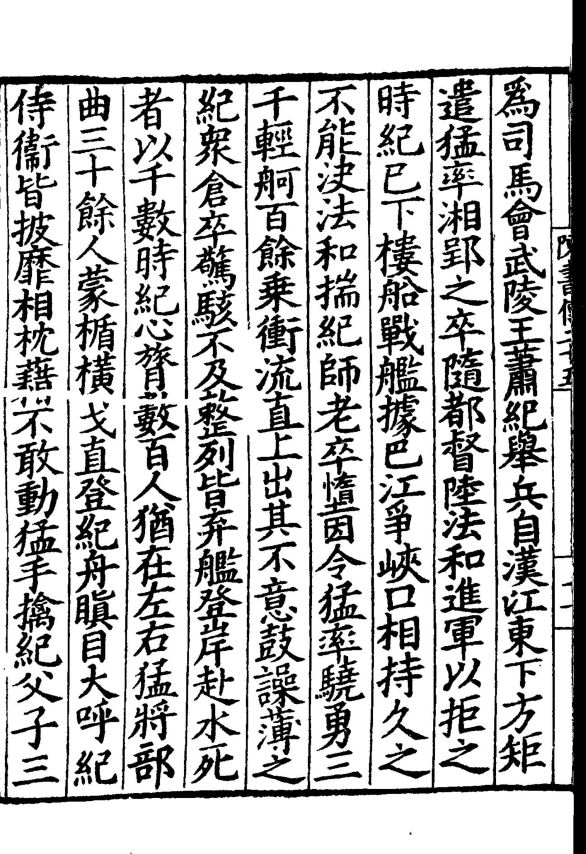 陳書傳二十五
爲司馬會武陵王蕭紀舉兵自漢江東下方矩
遣猛率湘郢之卒隨都督陸法和進軍以拒之
時紀已下樓船戰艦據巴江爭峽口相持久之
不能决法和揣紀師老卒惰因令猛率驍勇三
千輕舸百餘乗衝流直上出其不意鼓譟薄之
紀衆倉卒驚駭不及整列皆弃艦登岸赴水死
者以千數時紀心膂數百人猶在左右猛將部
曲三十餘人蒙楯橫戈直登紀舟瞋目大呼紀
侍衞皆披靡相枕藉不敢動猛手擒紀父子三